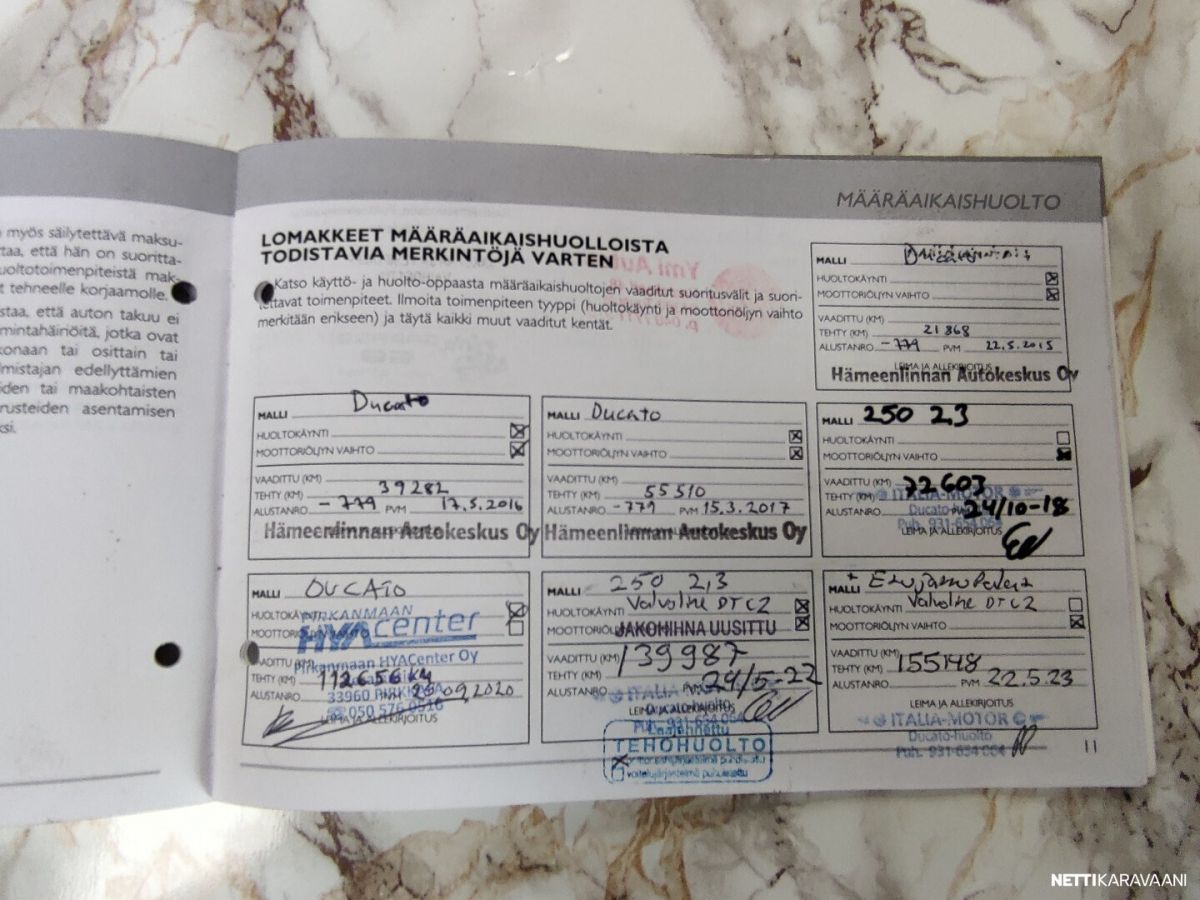 MÄÄRÄAIKAISHUOLTO
myös säilytettävä maksu-
taa, että hän on suoritta-
uoltotoimenpiteistä mak-
t tehneelle korjaamolle.
staa, että auton takuu ei
mintahäiriöitä, jotka ovat
konaan tai osittain tai
lmistajan edellyttämien
iden tai maakohtaisten
rusteiden asentamisen
ksi.
LOMAKKEET MÄÄRÄAIKAISHUOLLOISTA
TODISTAVIA MERKINTÖJÄ VARTEN
Katso käyttö- ja huolto-oppaasta määräaikaishuoltojen vaaditut suoritusvälit ja suori-
tettavat toimenpiteet. Ilmoita toimenpiteen tyyppi (huoltokäynti ja moottoriöljyn vaihto
merkitään erikseen) ja täytä kaikki muut vaaditut kentät.
MALLI
HUOLTOKÄYNTI
MOOTTORIÖLJYN VAIHTO
VAADITTU (KM)
TEHTY (KM) 21 868
ALUSTANRO -779 PVM 22.5.2015
LEIMA JA ALLEKIRJOITUS
Hämeenlinnan Autokeskus Oy
MALLI Ducato
HUOLTOKÄYNTI
MOOTTORIÖLJYN VAIHTO
VAADITTU (KM)
TEHTY (KM) 39282
ALUSTANRO -779 PVM 17.5.2016
Hämeenlinnan Autokeskus Oy
MALLI Ducato
HUOLTOKÄYNTI
MOOTTORIÖLJYN VAIHTO
VAADITTU (KM)
TEHTY (KM) 55510
ALUSTANRO -779 PVM 15.3.2017
Hämeenlinnan Autokeskus Oy
MALLI 250 2,3
HUOLTOKÄYNTI
MOOTTORIÖLJYN VAIHTO
VAADITTU (KM)
TEHTY (KM) 72603
ITALIA-MOTOR
ALUSTANRO 24/10-18
Ducato-huolto
Puh. 931-654 064
LEIMA JA ALLEKIRJOITUS
MALLI DUCATO
HUOLTOKÄYNTI
PIRKANMAAN
MOOTTORIÖLJYN VAIHTO
HYAcenter
VAADITTU (KM)
Pirkanmaan HYACenter Oy
TEHTY (KM) 112656 km
ALUSTANRO PVM 25.09.2020
33960 PIRKKALA
050 576 0516
LEIMA JA ALLEKIRJOITUS
MALLI 250 2,3
HUOLTOKÄYNTI Valvoline DTC2
MOOTTORIÖLJYN VAIHTO
JAKOHIHNA UUSITTU
VAADITTU (KM) 139987
TEHTY (KM)
ALUSTANRO PVM 24/5-22
ITALIA-MOTOR
Ducato-huolto
LEIMA JA ALLEKIRJOITUS
Puh. 931-654 064
Laajennettu
TEHOHUOLTO
voitelujärjestelmä puhdistettu
MALLI
HUOLTOKÄYNTI Valvoline DTC2
MOOTTORIÖLJYN VAIHTO
VAADITTU (KM)
TEHTY (KM) 155148
ALUSTANRO PVM 22.5.23
LEIMA JA ALLEKIRJOITUS
ITALIA-MOTOR
Ducato-huolto
Puh. 931-654 064
11
NETTIKARAVAANI